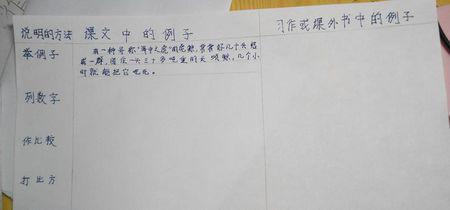 说明的方法 课文中的例子 习作或课外书中的例子
举例子 有一种号称"海中之虎"的虎鲸,常常好几个头结
成一群,围住一头三十多吨重的长须鲸,几个小
时就能把它吃光。
列数字
作比较
打比方